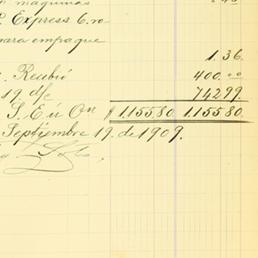 maquinas
Express 6.ro
para empaque
1.36.
Recibió 400.00
19. d/c 74299.
S. E. ú On $ 1.155.80 1.155.80.
Septiembre 19. de 1909.